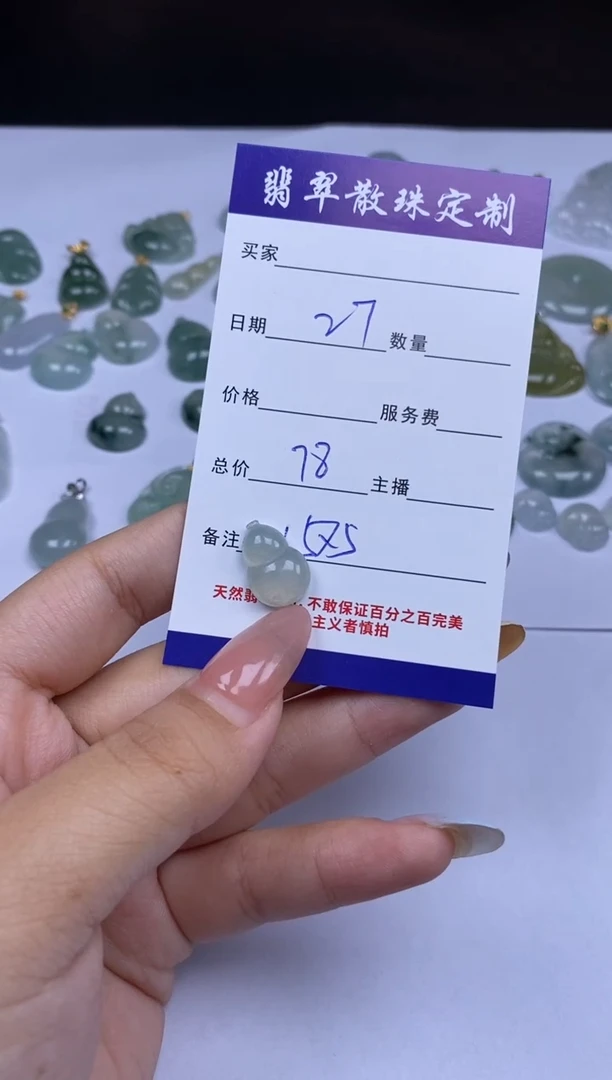 翡翠散珠定制
买家
日期 27 数量
价格 服务费
总价 78 主播
备注
天然 不敢保证百分之百完美
主义者慎拍